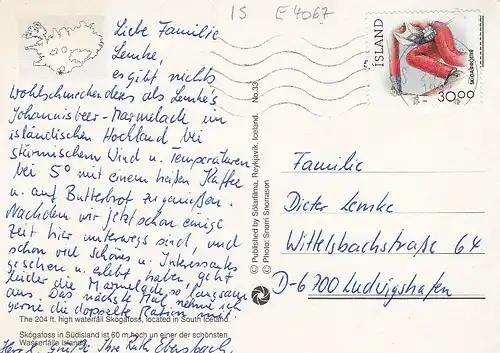 IS E 4067
ÍSLAND
30.00
Liebe Familie
Lemke,
es gibt nichts
wohlschmeckenderes als Lemke's
Johannisbeer-Marmelade im
isländischen Hochland bei
stürmischem Wind u. Temperaturen
bei 5° mit einem heißen Kaffee
u. auf Butterbrot zu genießen.
Nachdem wir jetzt schon einige
Zeit hier unterwegs sind, und
schon viel schönes u. Interessantes
gesehen u. erlebt haben, geht
leider die Marmelade so langsam
aus. Das nächste Mal nehme ich
gerne die doppelte Ration mit
The 204 ft. high waterfall Skógafoss, located in South Iceland.
Skógafoss in Südisland ist 60 m hoch un einer der schönsten
Wasserfälle Islands
Herzl. Grüße Ihre Ruth Ebersbach
© Published by Sólarfilma, Reykjavík, Iceland. No.33
© Photo: Snorri Snorrason
Familie
Dieter Lemke
Wittelsbachstraße 64
D-6700 Ludwigshafen